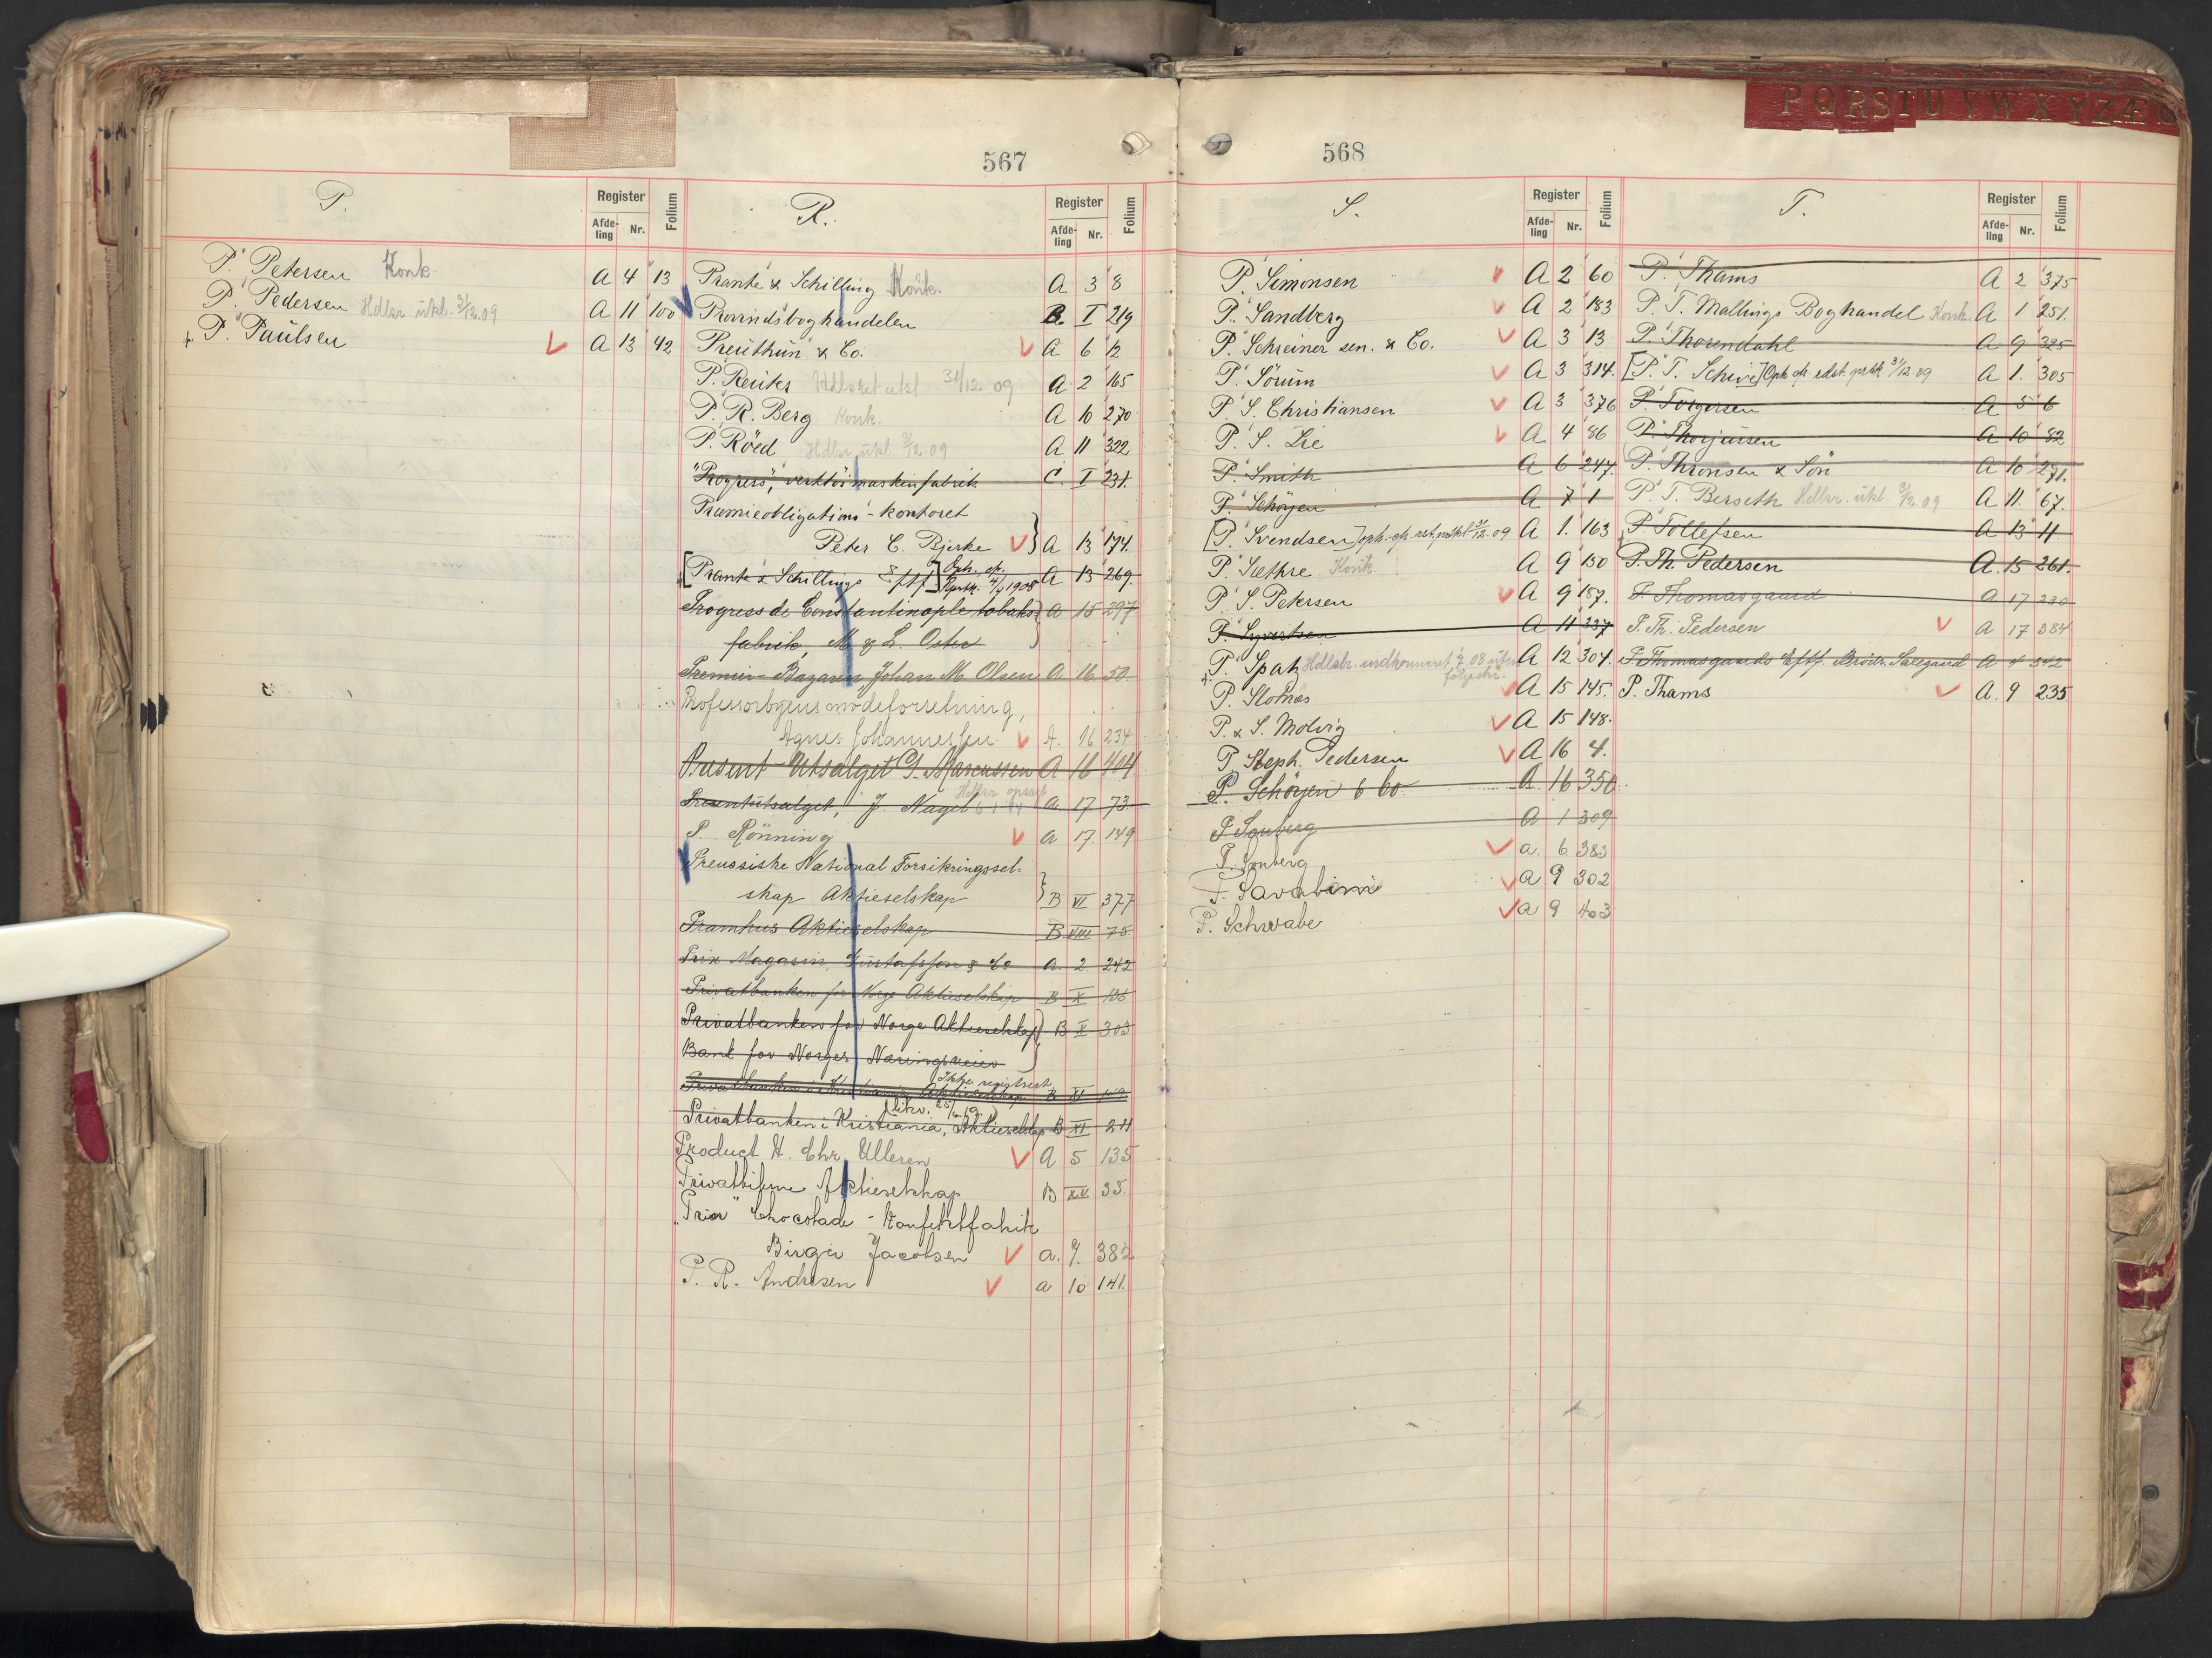 567
P.
Register
Afde-
ling
Nr.
Folium
P. Petersen Konk. A 4 13
P. Pedersen Hdlsr. utkl. 31/12.09 A 11 100
+ P. Paulsen V A 13 42
R.
Register
Afde-
ling
Nr.
Folium
Prante & Schilling Konk. A 3 8
Provindsboghandelen B. I 219
Preuthun & Co. V A 6 12
P. Reuter utkl 31/12. 09 A 2 165
P. R. Berg Konk. A 10 270
P. Röed Hdlsr utkl. 31/12.09 A 11 322
"Progress", verktöimaskinfabrik C. I 231.
Præmieobligations-kontoret
Peter C. Bjerke V A 13 174.
[Prante & Schillings Eftf] Oph. ep. A 13 269.
1908
Progress de Constantinople tobaks- A 15 297
fabrik, M. & L. Oster
Premier-Bazaren Johan M. Olsen A 16. 50
Professorbyens modeforretning,
Agnes Johannessen V A. 16 234
Present-Utsalget G. Marcussen A 16 404
Presentutsalget, J. Nagel A 17 73
P. Rönning V A 17. 149
Preussiske National Forsikringssel-
skap Aktieselskap B VI 377
Pramhus Aktieselskap B VIII 75
Prix Magasin, Gustafsson & Co A 2 242
Privatbanken for Norge Aktieselskap B X 136
Privatbanken for Norge Aktieselskap B X 303
Bank for Norges Næringsveier
Ikke registrert
Privatbanken i Kristiania Aktieselskap B XI
Privatbanken i Kristiania, Aktieselskap B XI 211
Product H. Chr. Ulleren V A 5 135
Privatbilene Aktieselskap B XV 35.
"Prior" Chocolade-Konfektfabrik
Birger Jacobsen V A. 9. 382
P. R. Andresen V A 10 141.
568
P Q R S T U V W X Y Z Æ Ø
S.
Register
Afde-
ling
Nr.
Folium
P. Simonsen V A 2 60
P. Sandberg V A 2 183
P. Schreiner sen. & Co. V A 3 13
P. Sörum V A 3 314.
P. S. Christiansen V A 3 376
P. S. Lie V A 4 86
P. Smith A 6 247.
P. Schöyen A 7 1
[P. Svendsen] oph. ep. rst. prtkl 31/12.09 A 1. 163
P. Sæthre Konk. A 9 150
P. S. Petersen V A 9 187.
P. Syvertsen A 11 237
+ P. Spatz Hdlsbr. indkommet 1/7 08 uten A 12 304.
følgeskr.
P. Stomås V A 15 145.
P. & S. Molvig V A 15 148.
P. Steph. Pedersen V A 16 4.
P. Schöyen & Co. A 16 350
P. Sonberg A 1 309
P. Sonberg V A. 6 383
P. Savabini V A 9 302
P. Schwabe V A 9 403
T.
Register
Afde-
ling
Nr.
Folium
P. Thams A 2 375
P. T. Mallings Boghandel Konk. A 1 251.
P. Thorendahl A 9 325
[P. T. Schive] Oph. ep. rdst. prtk 31/12 09 A 1. 305
P. Torgersen A 5 6
P. Thorjussen A 10 82
P. Thronsen & Sön A 10 271.
P. T. Berseth Hdlsr. utkl 31/12.09 A 11. 67.
P. Tollefsen A 13 11
P. Th. Pedersen A. 15 261.
P. Thomasgaard A 17 230
P. Th. Pedersen V A 17 384
P. Thomasgaards Eftf. Brödr. Salegaard A 4 342
P. Thams V A. 9 235